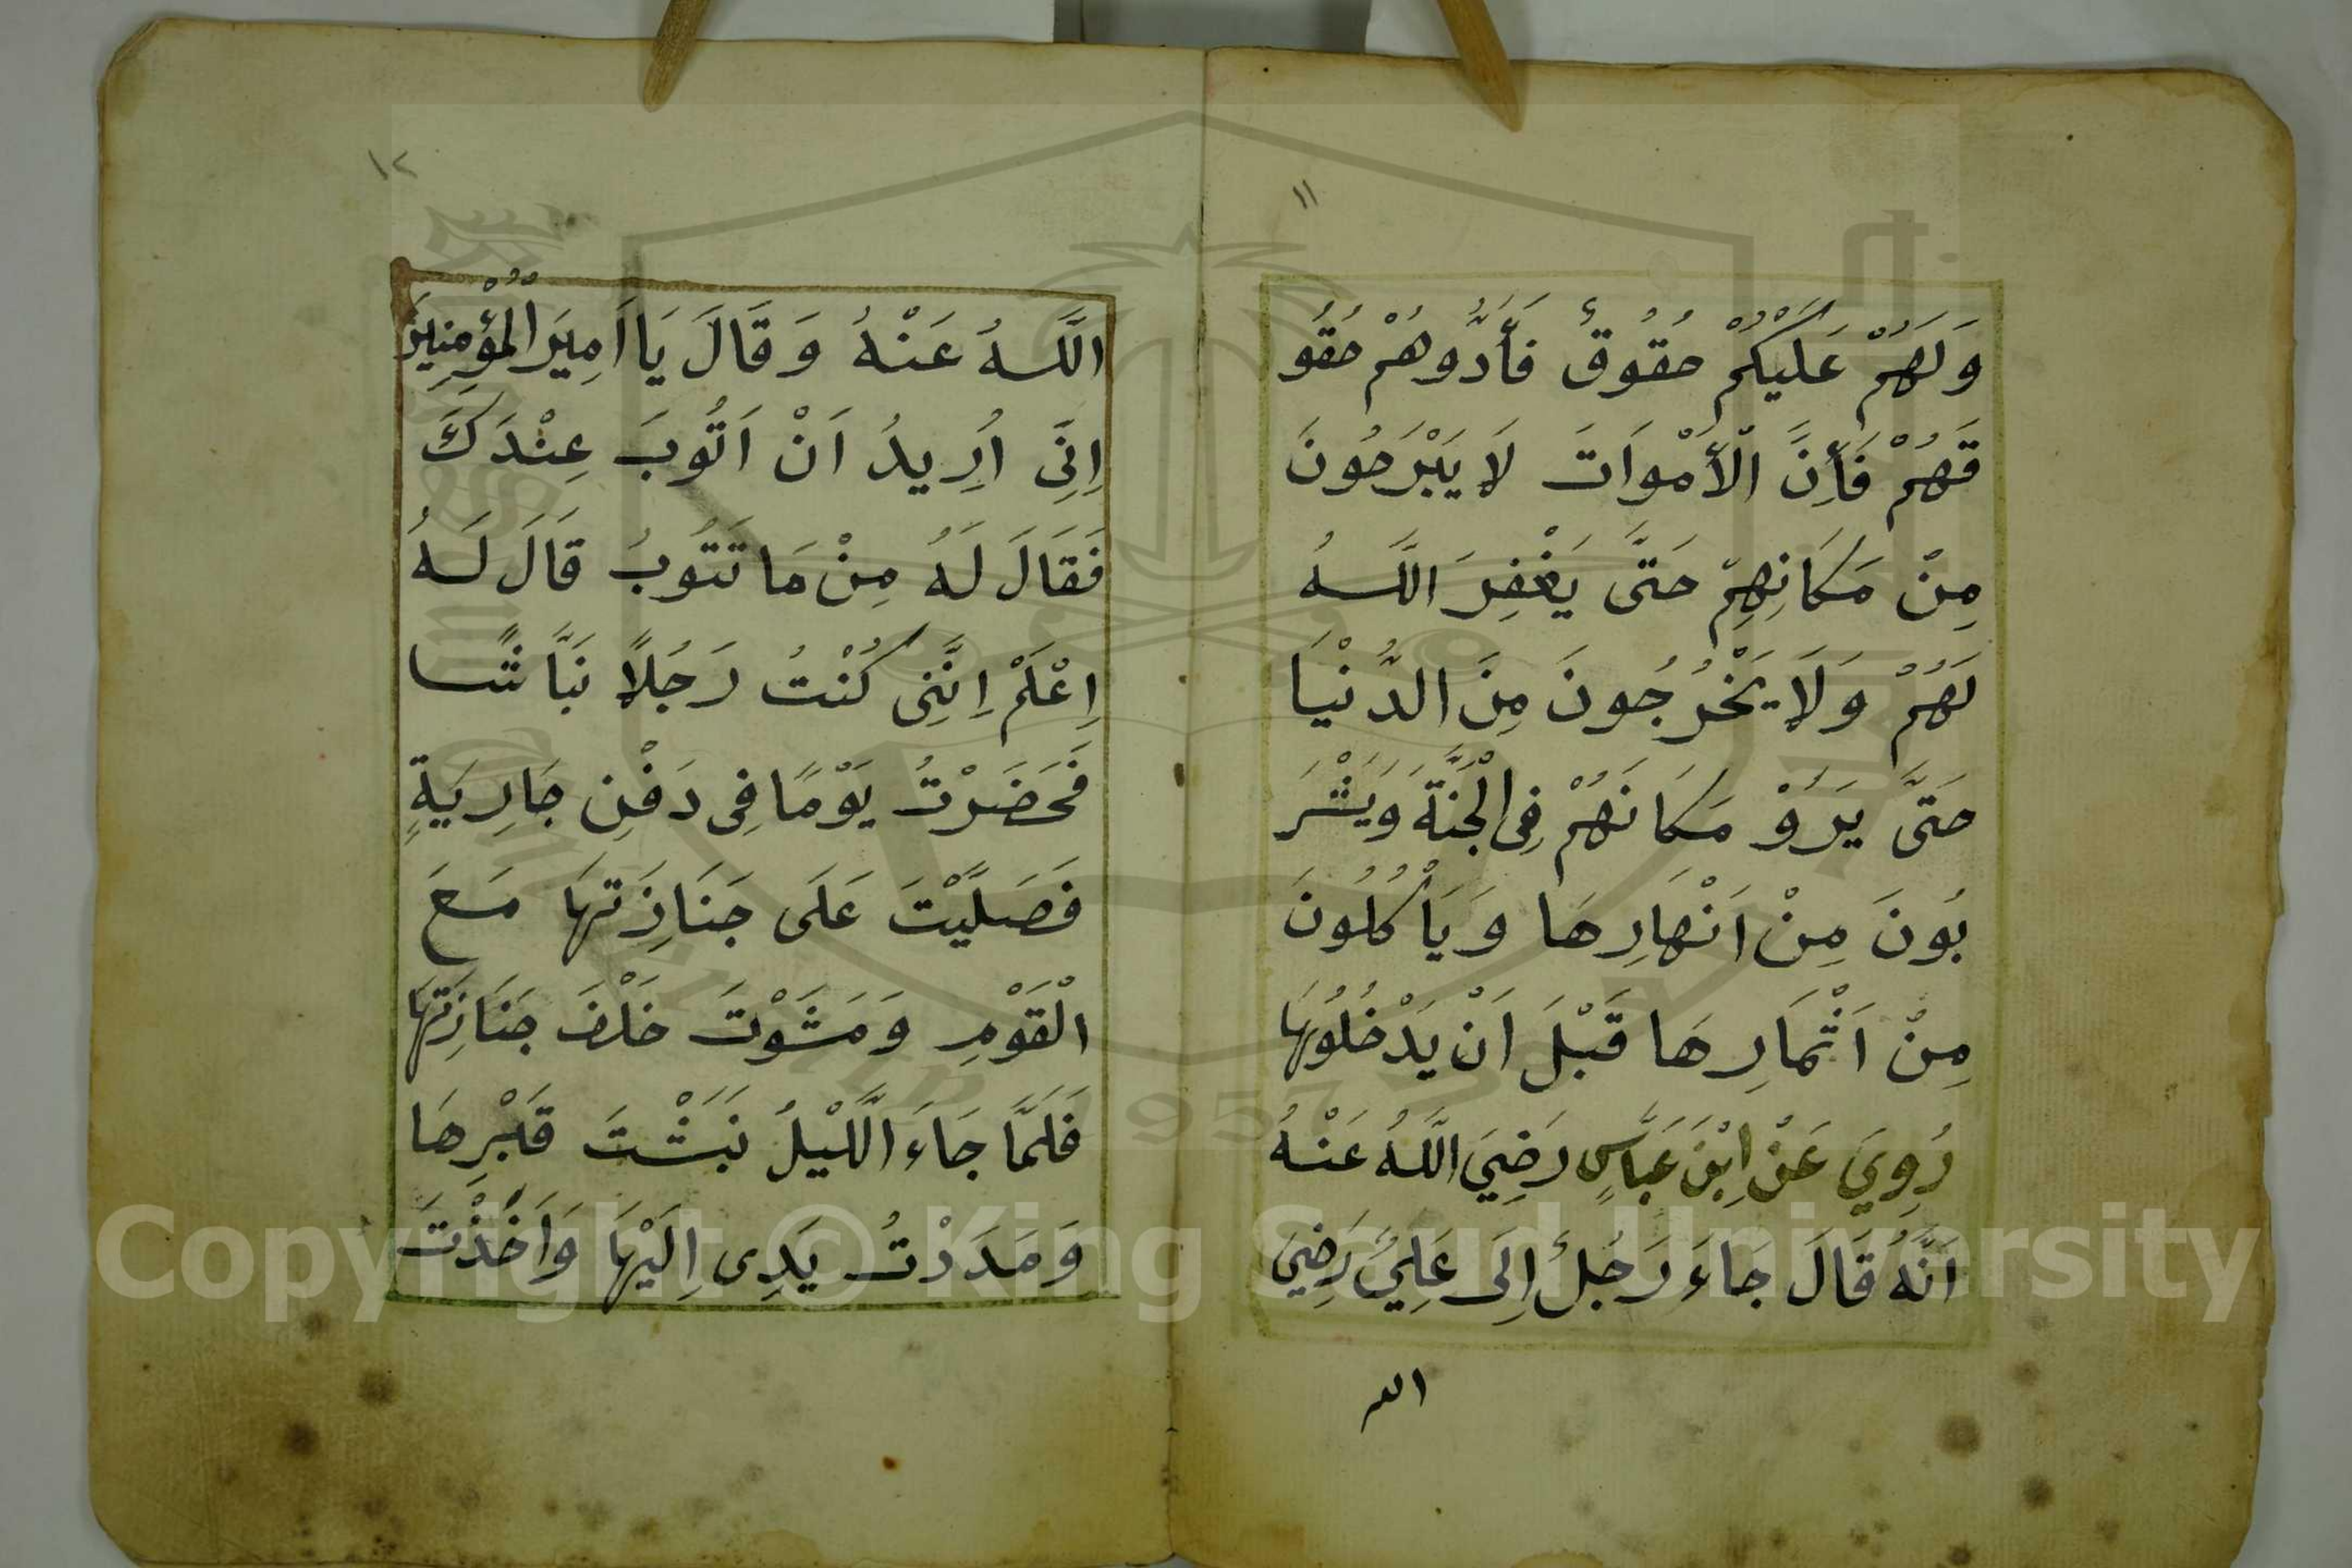 ١١
وَلَهُمْ عَلَيْكُمْ حُقُوقٌ فَأَدُّوهُمْ حُقُو
قَهُمْ فَأِنَّ الْأَمْوَاتَ لَا يَبْرَحُونَ
مِنْ مَكَانِهِمْ حَتَّى يَغْفِرَ اللَّهُ
لَهُمْ وَلَا يَخْرُجُونَ مِنَ الدُّنْيَا
حَتَّى يَرَوْ مَكَانَهُمْ فِى الْجَنَّةَ وَيَشْرَ
بُونَ مِنْ اَنْهَارِهَا وَيَأْكُلُونَ
مِنْ اَثْمَارِهَا قَبْلَ اَنْ يَدْخُلُوهَا
رُوِيَ عَنْ اِبْنَ عَبَّاسٍ رَضِيَ اللَّهُ عَنْهُ
اَنَّهُ قَالَ جَاءَ رَجُلٌ اِلَى عَلِيٍّ رَضِيَ
الله
١٢
اللَّهُ عَنْهُ وَقَالَ يَا اَمِيرَ الْمُؤْمِنِينَ
اِنِّى اُرِيدُ اَنْ اَتُوبَ عِنْدَكَ
فَقَالَ لَهُ مِنْ مَا تَتُوبُ قَالَ لَهُ
اِعْلَمْ اِنَّنِى كُنْتُ رَجُلًا نَبَّاشًا
فَحَضَرْتُ يَوْمًا فِى دَفْنِ جَارِيَةٍ
فَصَلَّيْتَ عَلَى جَنَازَتِهَا مَعَ
الْقَوْمِ وَمَشَوْتَ خَلْفَ جَنَازَتِهَا
فَلَمَّا جَاءَ اللَّيْلُ نَبَشْتَ قَبْرِهَا
وَمَدَدْتُ يَدِى اِلَيْهَا وَاَخَذْتَ
Copyright © King Saud University
1957